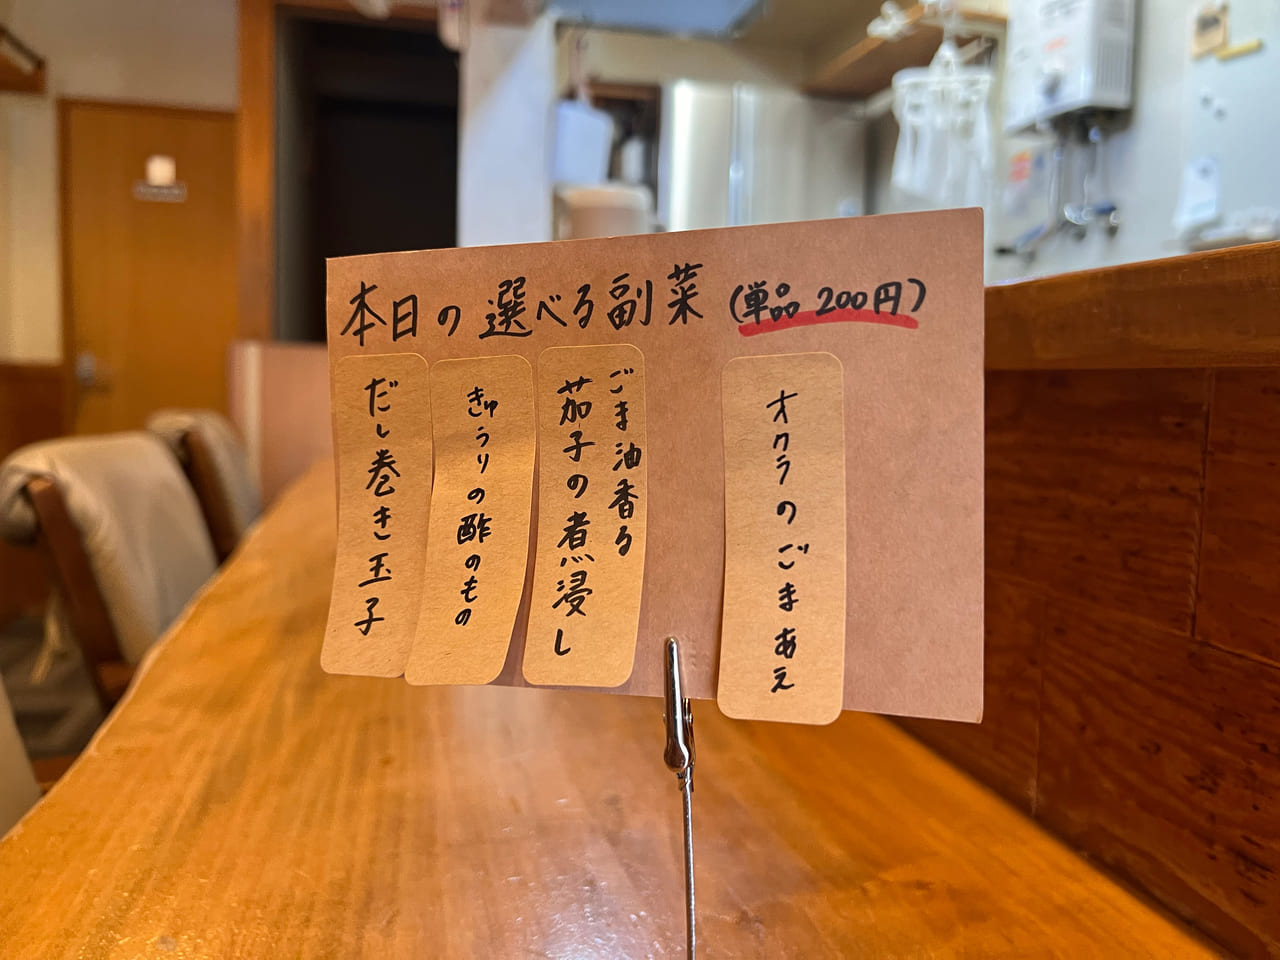 本日の選べる副菜(単品 200円)
だし巻き玉子
きゅうりの酢のもの
ごま油香る
茄子の煮浸し
オクラのごまあえ